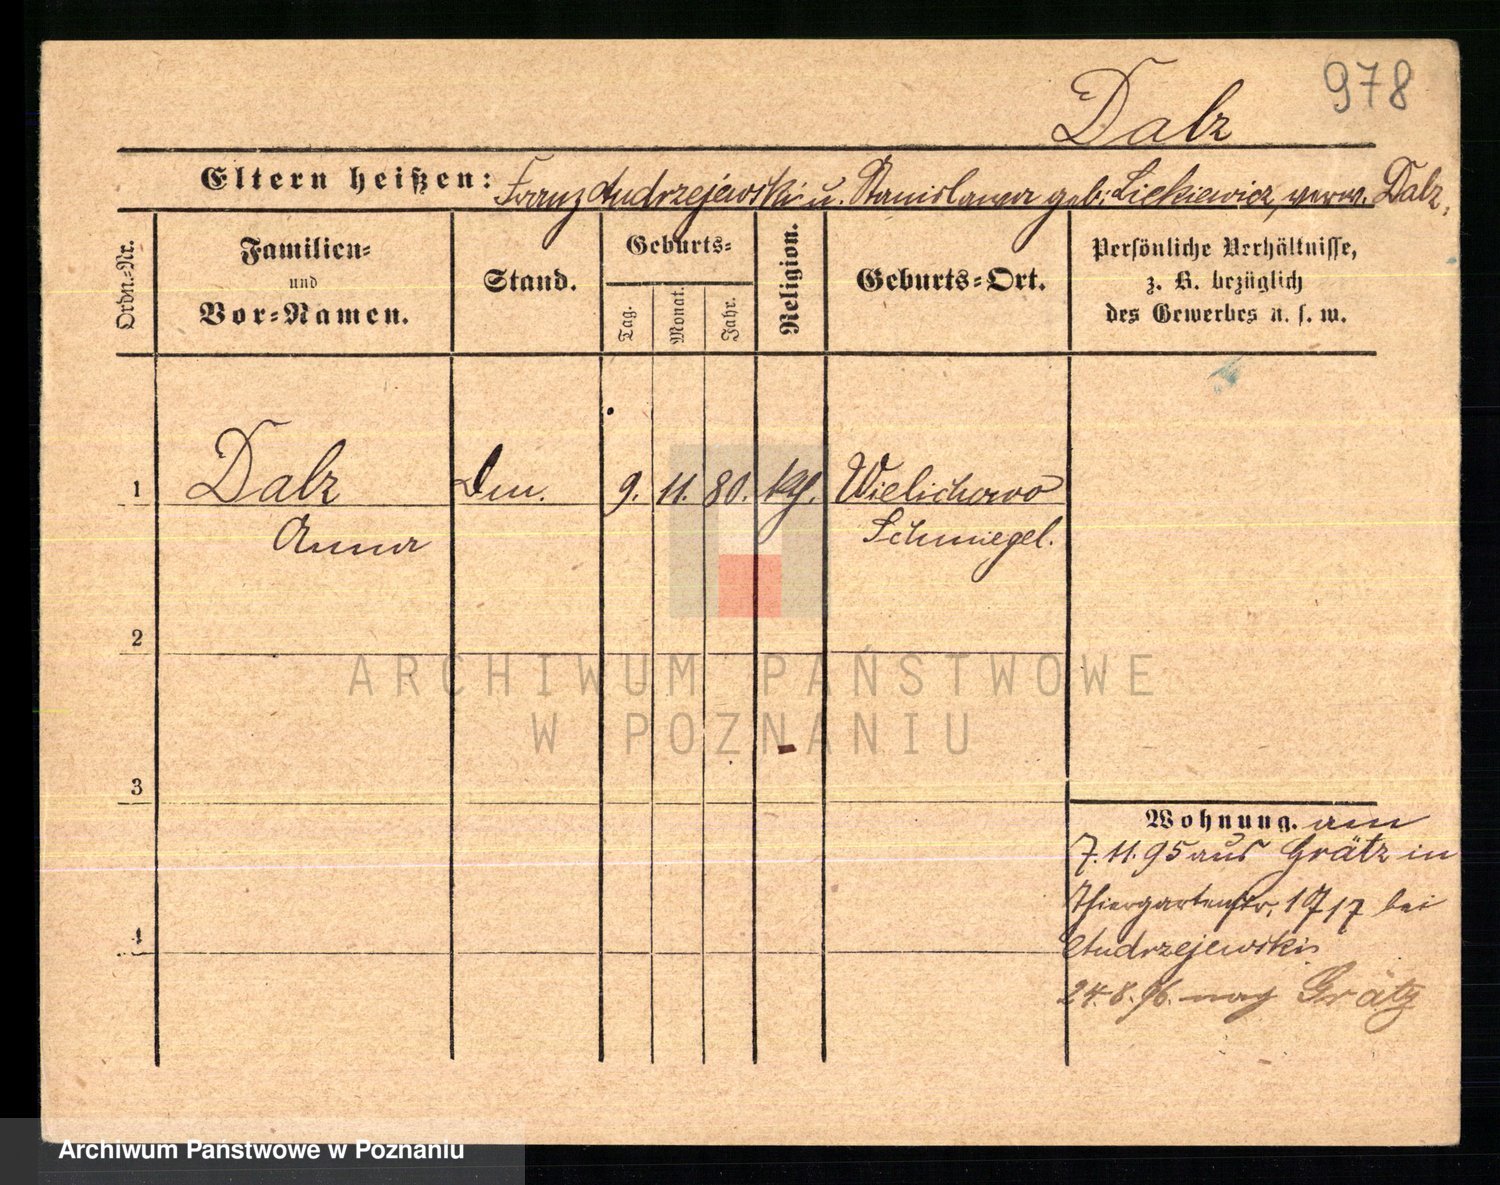 978
Dalz
Eltern heißen: Franz Andrzejewski u. Stanislawa geb. Lickiewicz, verw. Dalz,
Ordn.-Nr.
Familien-
und
Vor-Namen.
Stand.
Geburts-
Tag.
Monat.
Jahr.
Religion.
Geburts-Ort.
Persönliche Verhältnisse,
z. B. bezüglich
des Gewerbes u. s. w.
1 Dalz 9. 11. 80. kth. Wielichowo
Anna Schmiegel.
2
ARCHIWUM PAŃSTWOWE
W POZNANIU
3
Wohnung. am
7.11.95 aus Grätz in
Thiergartenstr. bei
4
Andrzejewski
24.8.96. nach Grätz
Archiwum Państwowe w Poznaniu